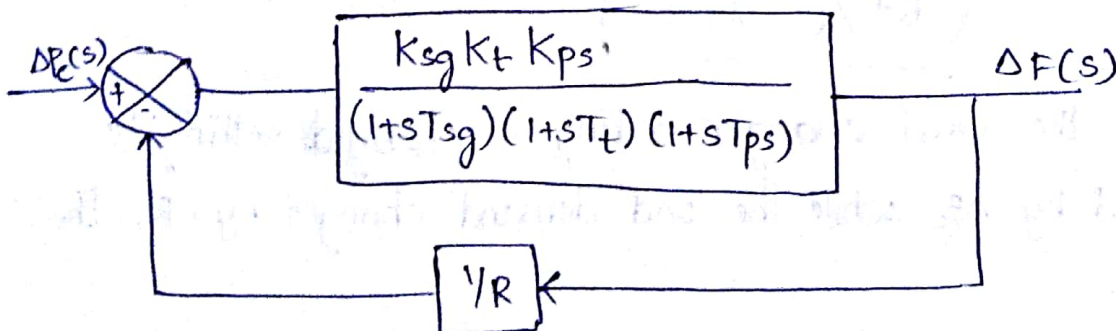 ΔPc(s)
+
-
Ksg Kt Kps
(1+sTsg)(1+sTt)(1+sTps)
ΔF(s)
1/R